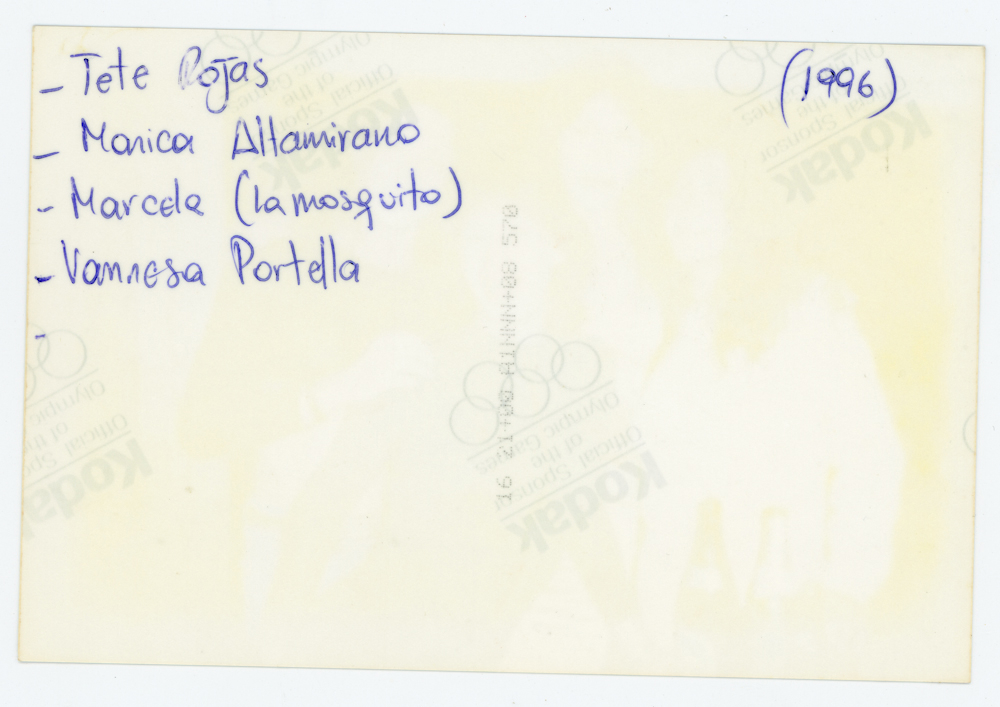 - Tete Rojas
(1996)
- Monica Altamirano
- Marcela (la mosquito)
- Vannesa Portella
-
Kodak
Official Sponsor
of the
Olympic Games
Kodak
Official Sponsor
of the
Olympic Games
Kodak
Official Sponsor
of the
Olympic Games
Kodak
Official Sponsor
of the
Olympic Games